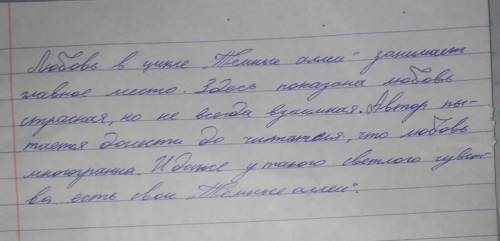 Любовь в цикле „Темные аллеи" занимает
главное место. Здесь показана любовь
страсная, но не всегда взаимная. Автор пы-
тается донести до читателя, что любовь
многогранна. И даже у такого светлого чувст-
ва есть свои „Темные аллеи".